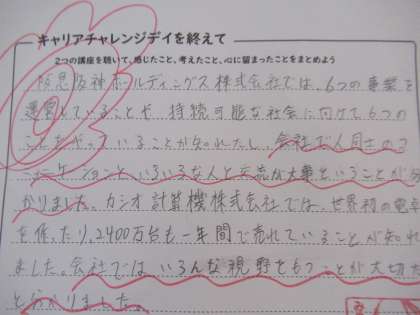 キャリアチャレンジデイを終えて
2つの講座を聴いて、感じたこと、考えたこと、心に留まったことをまとめよう
阪急阪神ホールディングス株式会社では、6つの事業を
運営していることや、持続可能な社会に向けて6つの
ことをやっていることが知れたし、会社で人同士のコ
ミュニケーションと、いろいろな人と交流が大事ということが分
かりました。カシオ計算機株式会社では、世界初の電卓
を作ったり、2400万台も一年間で売れていることが知れ
ました。会社ではいろんな視野をもつことが大切だ
とわかりました。